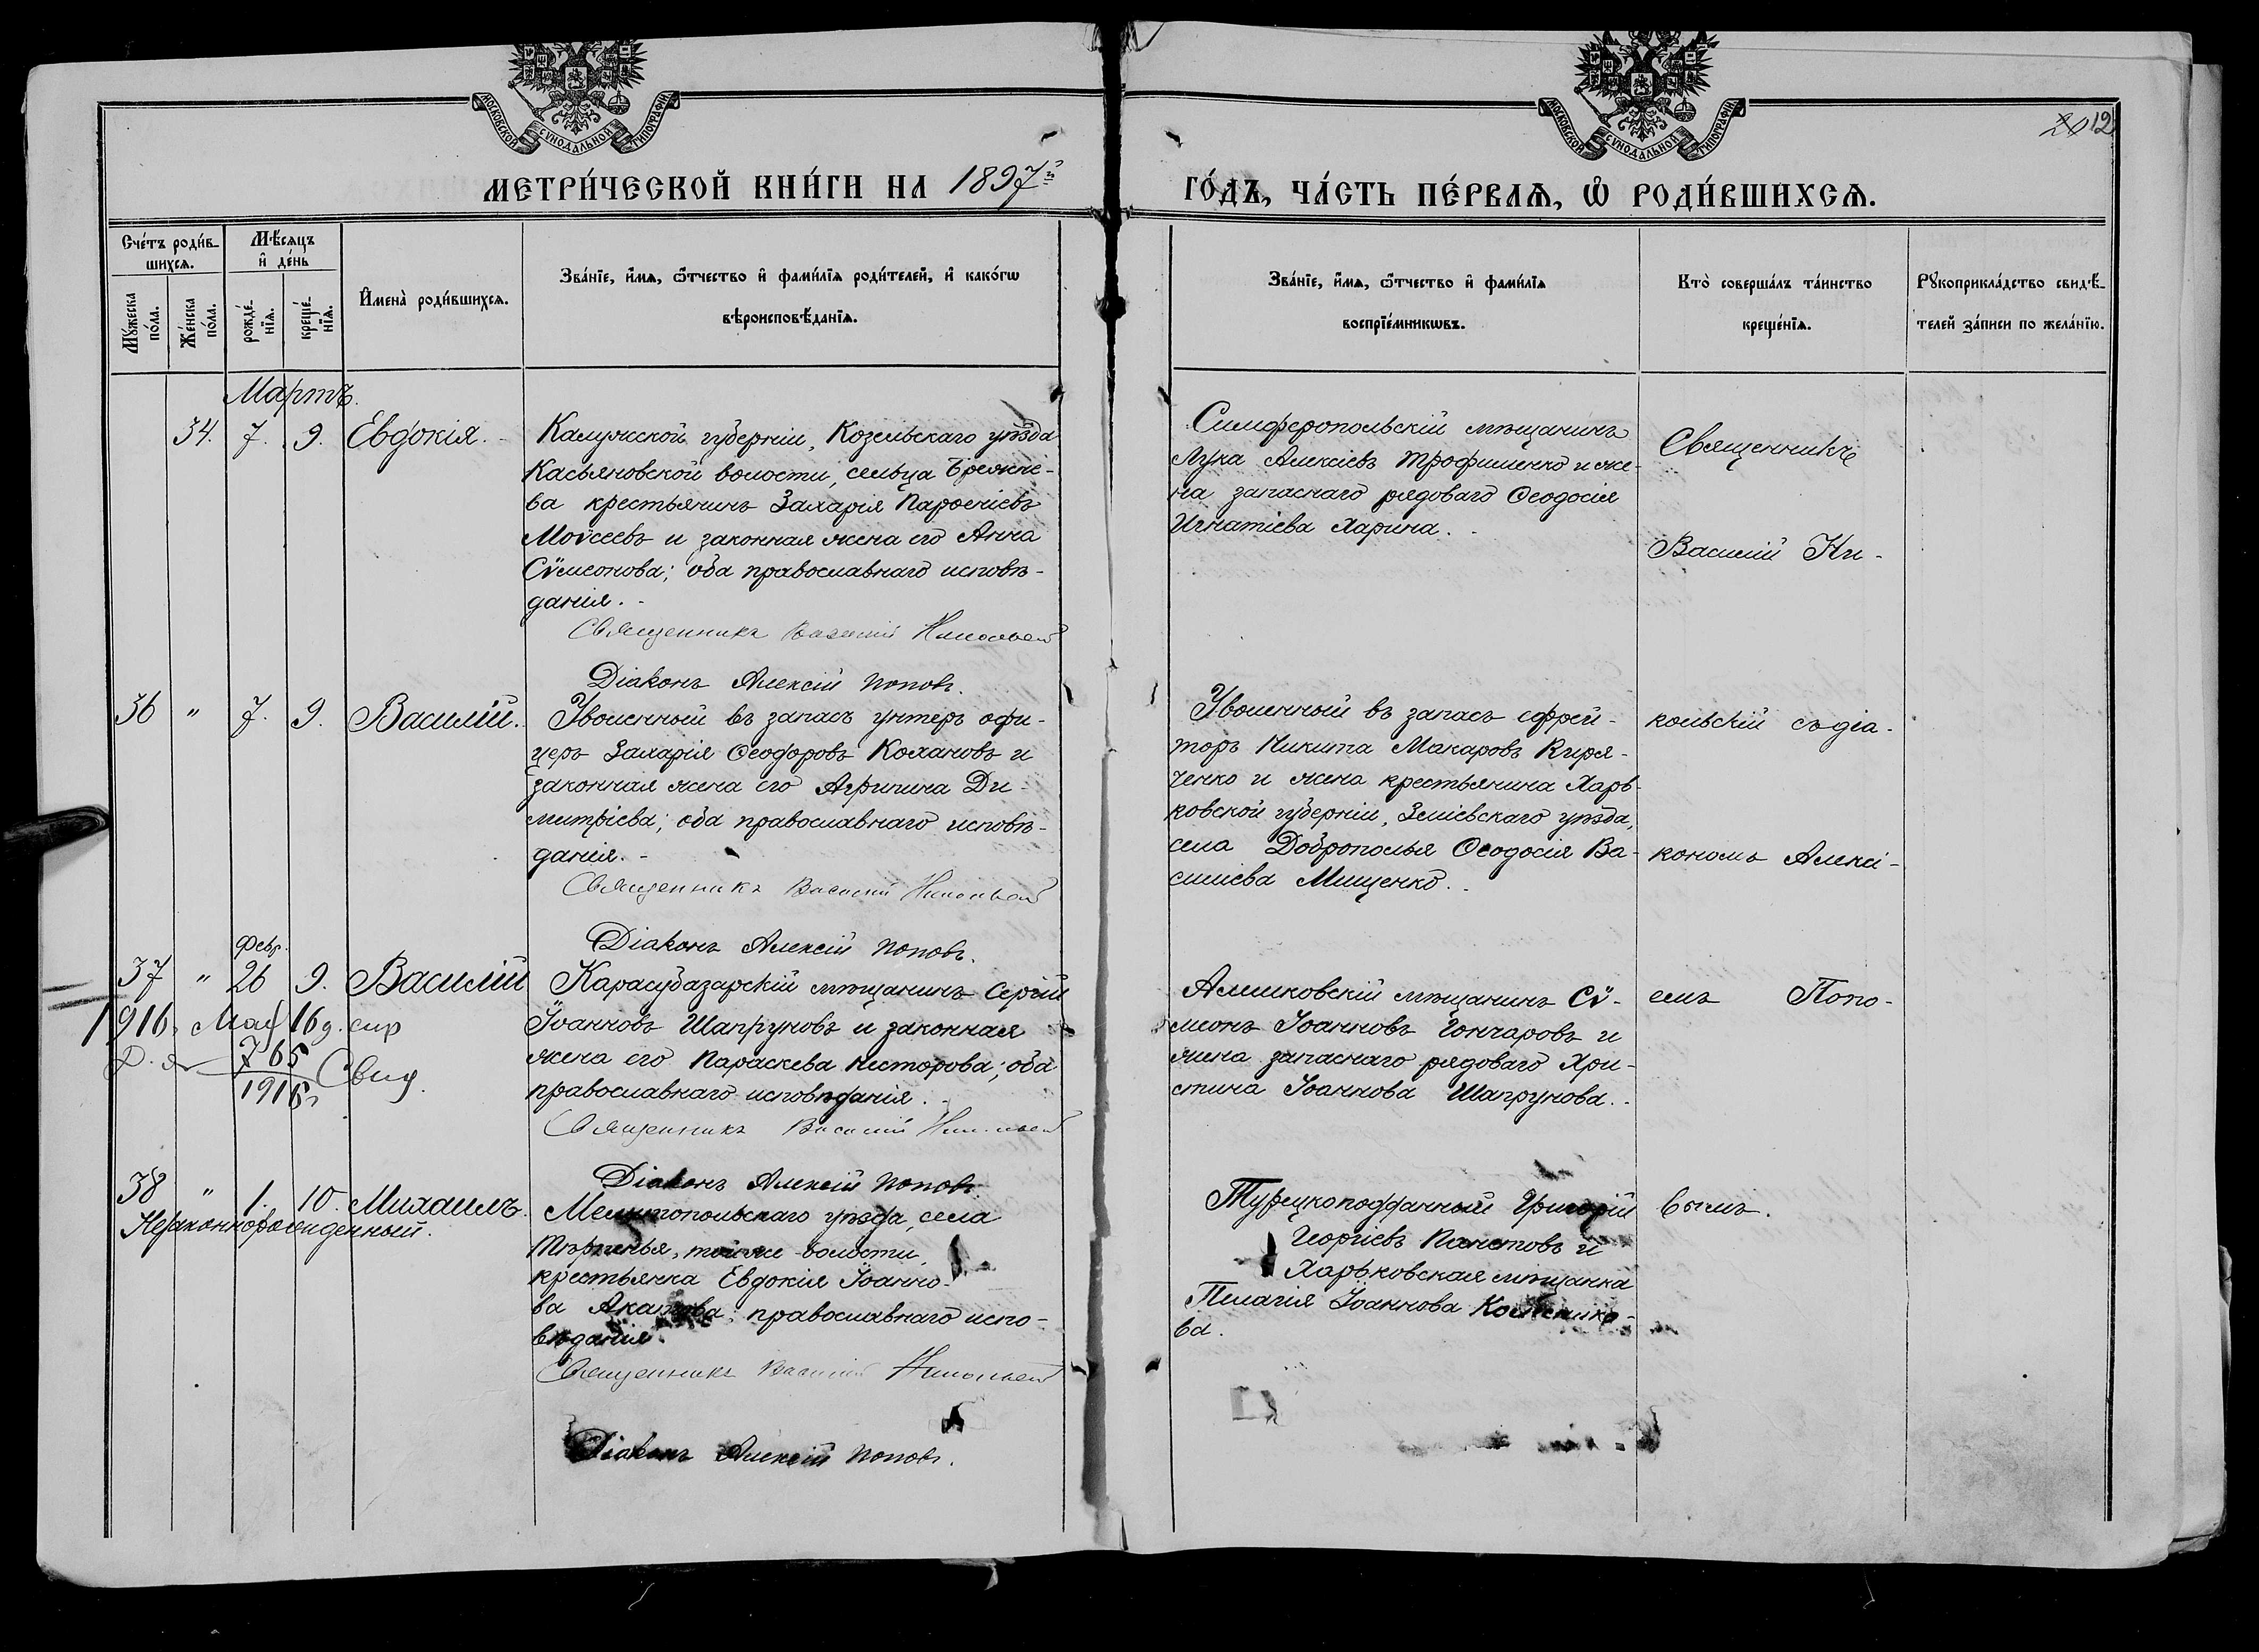 МОСКОВСКОЙ СѴНОДАЛЬНОЙ ТИПОГРАФІИ
МОСКОВСКОЙ СѴНОДАЛЬНОЙ ТИПОГРАФІИ
12
МЕТРИ́ЧЕСКОЙ КНИ́ГИ НА 1897й
ГО́ДЪ, ЧА́СТЬ ПЕ́РВАѦ, Ѡ҆ РОДИ́ВШИХСѦ.
Сче́тъ роди́в-
шихсѧ.
Мѣ́сѧцъ
и҆ де́нь
Мꙋ́жеска
по́ла.
Же́нска
по́ла.
рожде́-
нїѧ.
креще́-
нїѧ.
И҆мена̀ роди́вшихсѧ.
Зва́нїе, и҆́мѧ, ѻ҆́тчество и҆ фами́лїѧ роди́телей, и҆ како́гѡ
вѣроисповѣ́данїѧ.
Зва́нїе, и҆́мѧ, ѻ҆́тчество и҆ фами́лїѧ
воспрїе́мникѡвъ.
Кто̀ соверша́лъ та́инство
креще́нїѧ.
Рꙋкоприкла́дство свидѣ́-
телей за́писи по жела́нїю.
Мартъ.
34. 7. 9. Евдокія.
Калужской губерніи, Козельскаго уѣзда
Касьяновской волости, сельца
ва крестьянинъ Захарія Парѳеніевъ
Моѵсеевъ и законная жена его Анна
Сѵмеонова; оба православнаго исповѣ-
данія.
Священникъ Василій Никольскій
Діаконъ Алексій Поповъ.
Симферопольскій мѣщанинъ
Лука Алексіевъ Трофименко и же-
на запаснаго рядоваго Ѳеодосія
Игнатіева Харина.
Священникъ
Василій Ни-
36 " 7. 9. Василій.
Уволенный въ запасъ унтеръ офи-
церъ Захарія Ѳеодоровъ Кохановъ и
законная жена его Агрипина Ди-
митріева; оба православнаго исповѣ-
данія.
Священникъ Василій Никольскій
Діаконъ Алексій Поповъ.
Уволенный въ запасъ ефрей-
торъ Никита Макаровъ Киря-
ченко и жена крестьянина Харь-
ковской губерніи, Зміевскаго уѣзда,
села Доброполья Ѳеодосія Ва-
силіева Мищенко.
кольскій съ діа-
кономъ Алексі-
Февр.
37 " 26 9. Василій
1916 г. Мая 16 д.
765
1916 г. Свид.
Карасубазарскій мѣщанинъ Сергій
Іоанновъ Шапруновъ и законная
жена его Параскева Несторова; оба
православнаго исповѣданія.
Священникъ Василій Никольскій
Діаконъ Алексій Поповъ.
Алешковскій мѣщанинъ Сѵ-
меонъ Іоанновъ Гончаровъ и
жена запаснаго рядоваго Хри-
стина Іоаннова Шапрунова.
емъ Попо-
38 " 1. 10. Михаилъ.
Незаконнорожденный.
Мелитопольскаго уѣзда, села
Тѣрпенья, той же волости,
крестьянка Евдокія Іоанно-
ва православнаго испо-
вѣданія.
Священникъ Василій Никольскій
Діаконъ Алексій Поповъ.
Турецкоподданный Григорій
Георгіевъ и
Харьковская мѣщанка
Пелагія Іоаннова
ва.
вымъ.